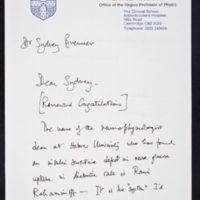 Office of the Regius Professor of Physic
The Clinical School
Addenbrooke's Hospital
Hills Road
Cambridge CB2 2QQ
Telephone: 0223
Dr Sydney Brenner
Dear Sydney,
[Renewed Congratulations]
The name of the neurophysiologist
dean at Hebrew University who has found
an insulin sensitive defect in nerve glucose
uptake in diabetic rats is Rami
Rahamimoff – It is his "system" I'd